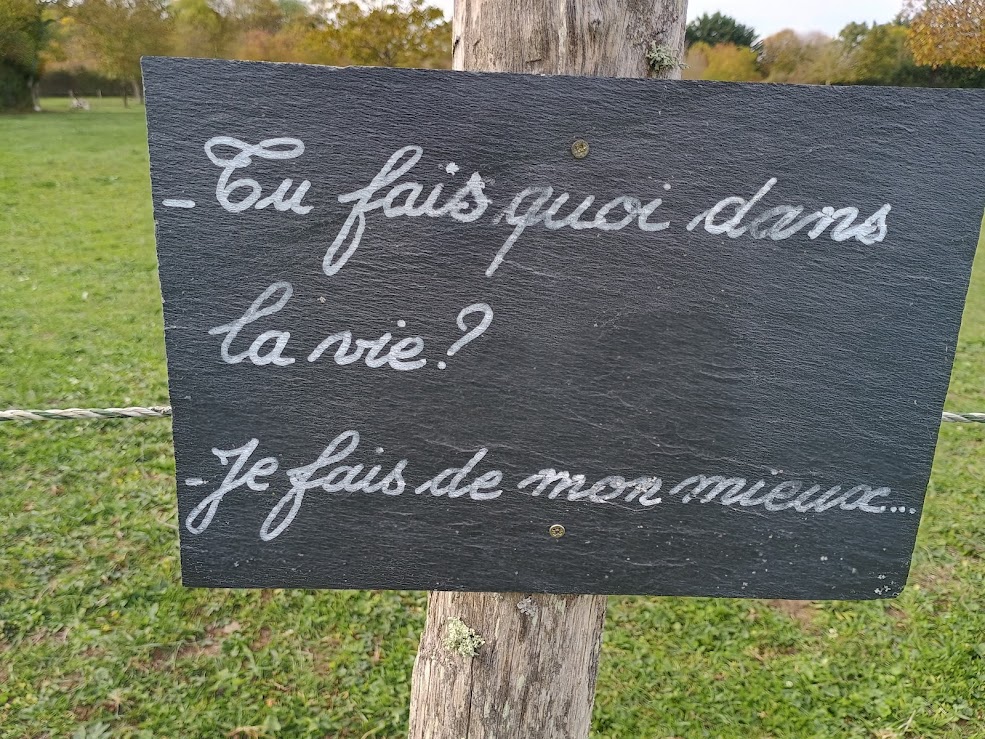 - Tu fais quoi dans
la vie?
- Je fais de mon mieux...